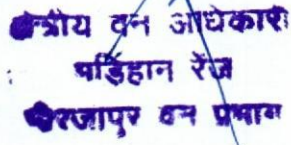 क्षेत्रीय वन अधिकारी
पडिहान रेंज
मिरजापुर वन प्रभाग